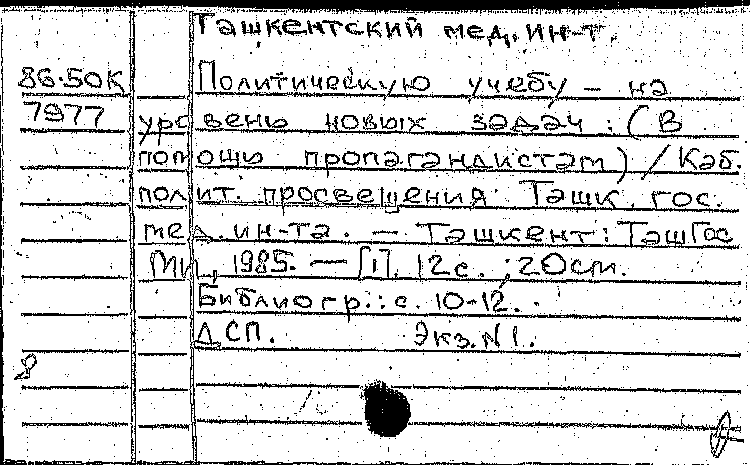 Ташкентский мед. ин-т.
86.50К Политическую учебу - на
7977 уровень новых задач: (В
помощь пропагандистам) / Каб.
полит. просвещения Ташк. гос.
мед. ин-та. - Ташкент: ТашГос
МИ, 1985. - [1], 12с.; 20см.
Библиогр.: с. 10-12.
ДСП. Экз. N1.
8